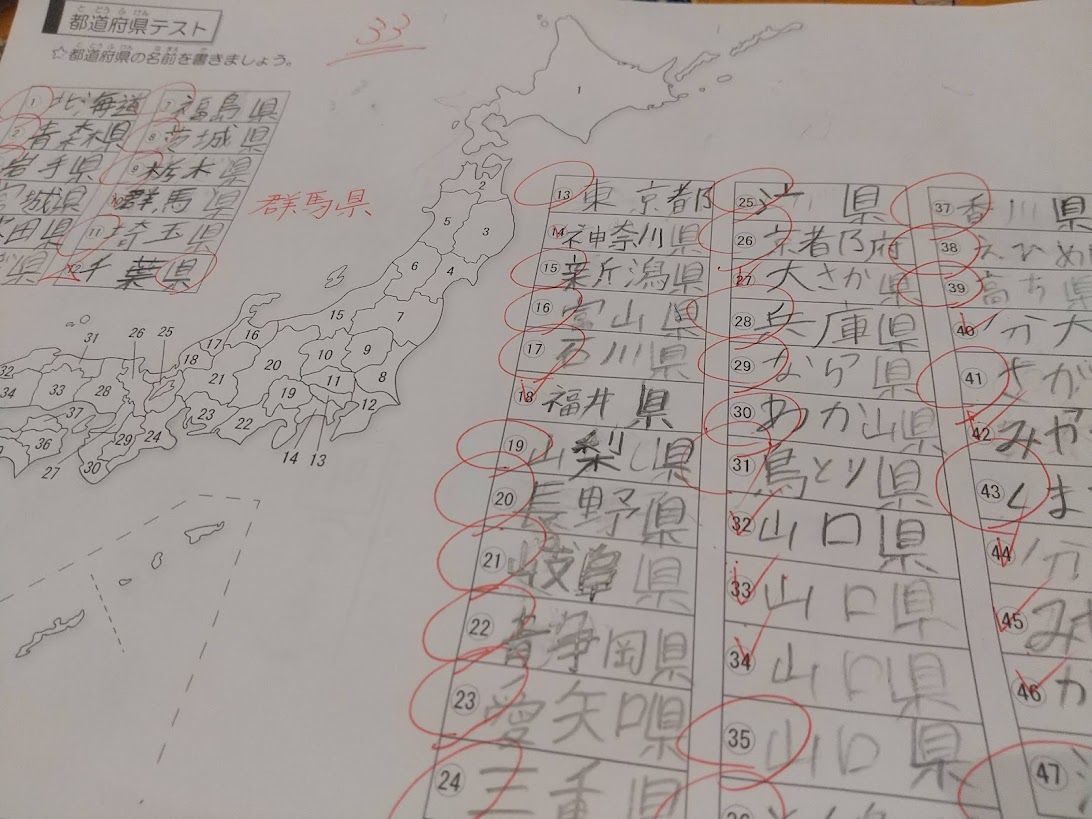 都道府県テスト
☆都道府県の名前を書きましょう。
33
1 北海道
2 青森県
岩手県
宮城県
田県
県
7 福島県
8 茨城県
9 栃木県
10 群馬県
群馬県
11 埼玉県
12 千葉県
13 東京都
14 神奈川県
15 新潟県
16 富山県
17 石川県
18 福井県
19 山梨県
20 長野県
21 岐阜県
22 静岡県
23 愛知県
24 三重県
25 県
26 京都府
27 大さか県
28 兵庫県
29 なら県
30 わか山県
31 鳥とり県
32 山口県
33 山口県
34 山口県
35 山口県
37 香川県
38 えひめ
39 高ち県
40 大
41 さが
42 みや
43 くま
44
45 みや
46 か
47
1
2
5
3
6
4
15
7
16
17
18
10
9
20
21
11
8
19
12
22
23
14
13
31
26
25
32
34
33
28
37
36
29
24
27
30